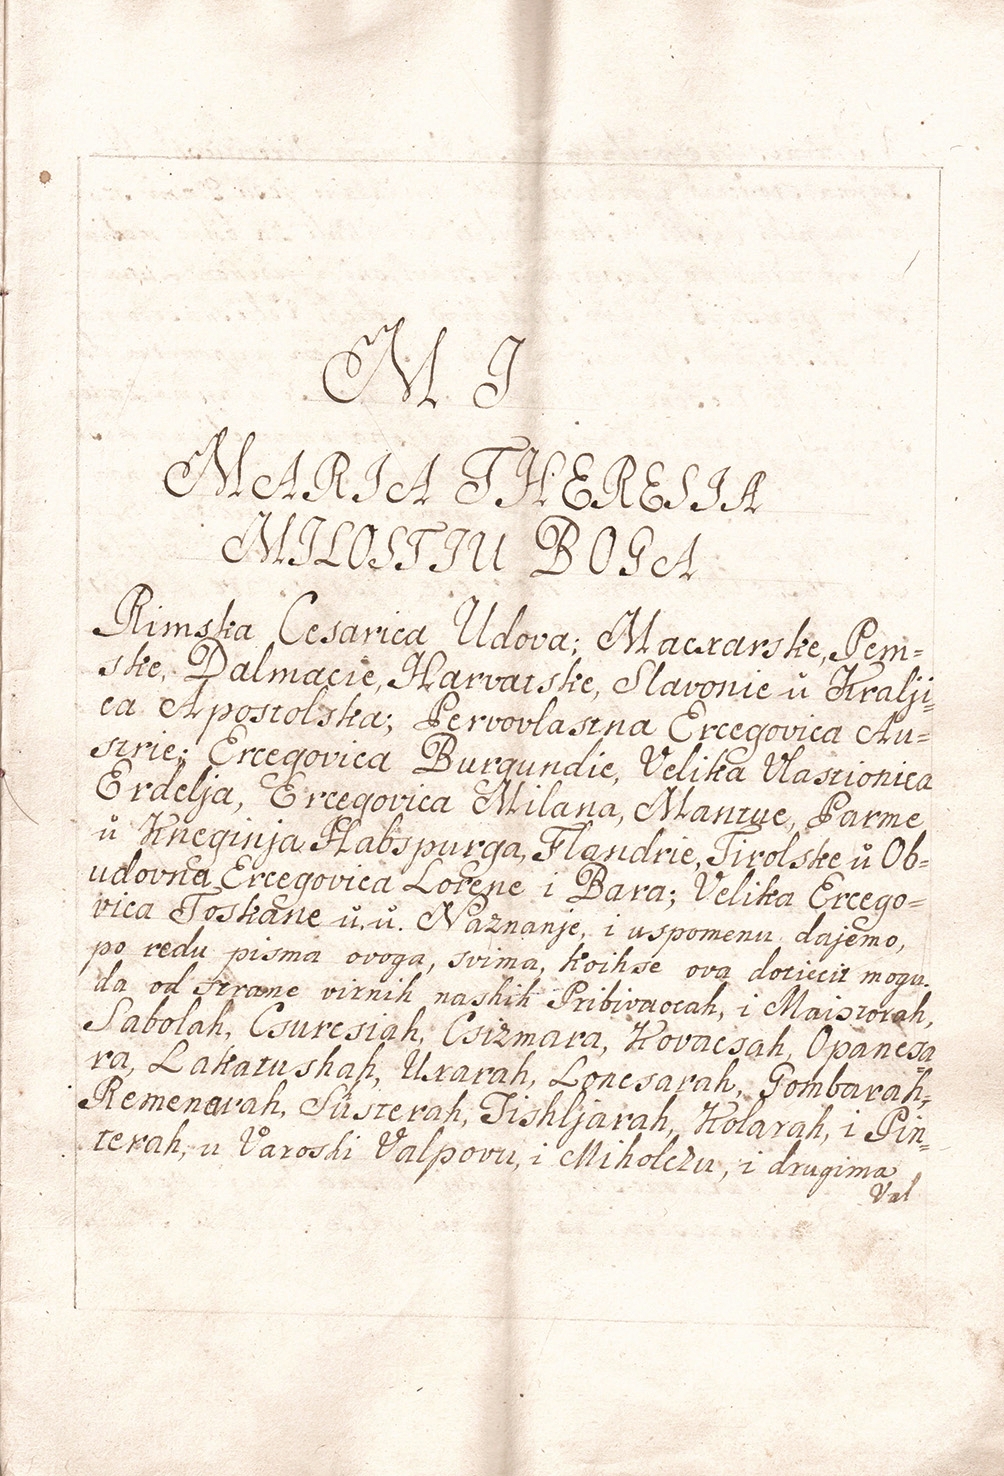 M I
MARIA THERESIA
MILOSTIU BOGA
Rimska Cesarica Udova; Macxarske, Pem=
ske, Dalmacie, Harvatske, Slavonie ů Kralji=
ca Apostolska; Pervovlastna Ercegovica Au=
strie; Ercegovica Burgundie, Velika Vlastionica
Erdelja, Ercegovica Milana, Mantue, Parme
ů Kneginja Habspurga, Flandrie, Tirolske ů Ob=
udovna Ercegovica Lorene i Bara; Velika Ercego=
vica Toskane ů. ů. Naznanje, i uspomenu dajemo,
po redu pisma ovoga, svima, koihse ova doticcit mogu.
da od strane virnih nashih Pribivaocah, i Maistorah,
Sabolah, Csurcsiah, Csizmara, Kovacsah, Opancsa=
ra, Lakatushah, Uxarah, Loncsarah, Gombarah,
Remenarah, Susterah, Tishljarah, Kolarah, i Pin=
terah, u Varoshi Valpovu, i Miholczu, i drugima
Val